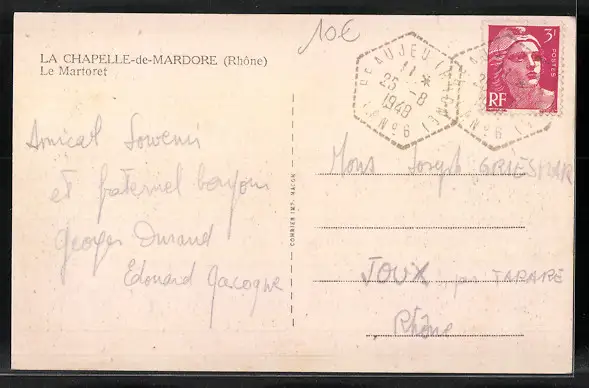 LA CHAPELLE-de-MARDORE (Rhône)
Le Martoret
10€
BEAUJEU
11 *
25 -8
1948
3F
POSTES
RF
Amical Souvenir
et fraternel bonjour
Georges Durand
Edouard Gacogne
COMBIER IMP. MACON
Mons Joseph GRIESMAR
JOUX par TARARE
Rhône